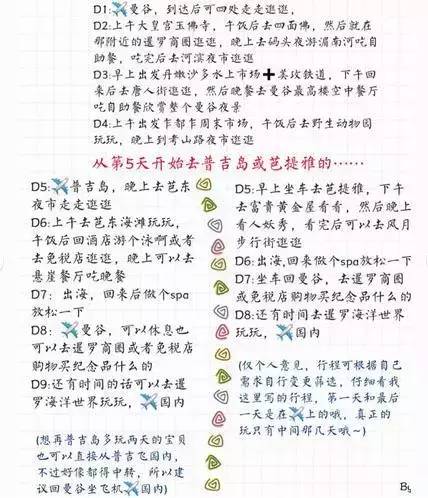 D1:✈曼谷，到达后可四处走走逛逛，
D2:上午大皇宫玉佛寺，午饭后去四面佛，然后就在
那附近的暹罗商图逛逛，晚上去码头夜游湄南河吃自
助餐，吃完后去河滨夜市逛逛
D3:早上出发丹嫩沙多水上市场➕美玫铁道，下午回
来后去唐人街逛逛，然后晚餐去曼谷最高楼空中餐厅
吃自助餐欣赏整个曼谷夜景
D4:上午出发乍都乍周末市场，午饭后去野生动物园
玩玩，晚上到考山路夜市逛逛
从第5天开始去普吉岛或芭提雅的……
D5:✈普吉岛，晚上去芭东
夜市走走逛逛
D6:上午去芭东海滩玩玩，
午饭后回酒店游个泳啊或者
去免税店逛逛，晚上可以去
悬崖餐厅吃晚餐
D7：出海，回来后做个spa
放松一下
D8：✈曼谷，可以休息也
可以去暹罗商图或者免税店
购物买纪念品什么的
D9:还有时间的话可以去暹
罗海洋世界玩玩，✈国内
(想再普吉岛多玩两天的宝贝
也可以直接从普吉飞国内，
不过好像都得中转，所以建
议回曼谷坐飞机✈国内)
D5:早上坐车去芭提雅，下午
去富贵黄金屋看看，然后晚上
看人妖秀，看完后可以去风月
步行街逛逛
D6:出海,回来后做个spa放松一下
D7:坐车回曼谷，去暹罗商图
或免税店购物买纪念品什么的
D8:还有时间去暹罗海洋世界
玩玩，✈国内
(仅个人意见，行程可根据自己
需求自行变更筛选，仔细看我
这里写的行程，第一天和最后
一天是在✈上的哦，真正的
玩只有中间那几天哦~)